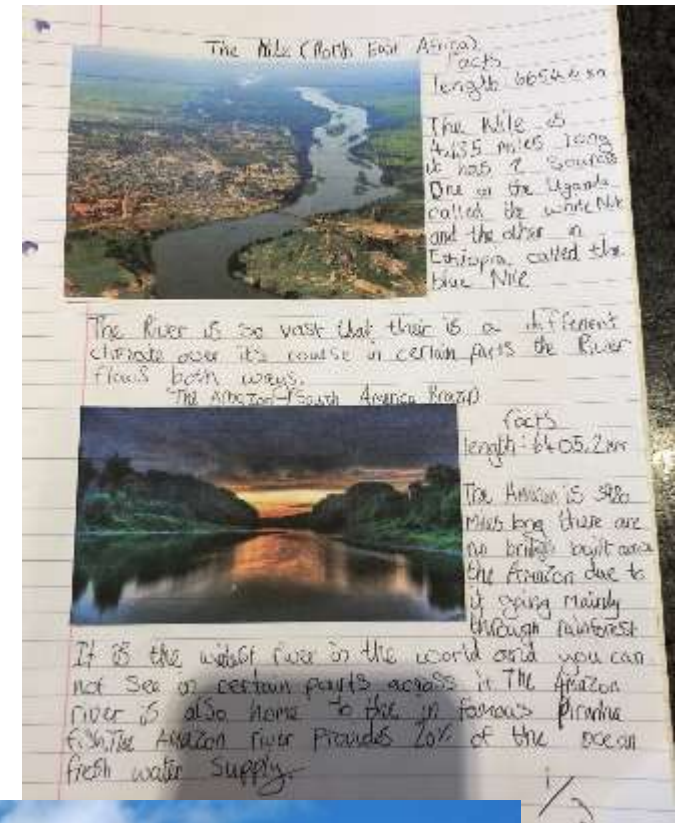 The Nile (North East Africa)
Facts
length 6654.4 km
The Nile is
4,135 miles long
it has 2 sources
One in the Uganda
called the white Nile
and the other in
Ethiopia called the
blue Nile
The River is so vast that their is a different
climate over it's course in certain parts the River
flows both ways.
The Amazon (South America Brazil)
facts
length: 6405.2 km
The Amazon is 3980
Miles long there are
no bridges built across
the Amazon due to
it going mainly
through rainforest
It is the widest river in the world and you can
not see in certain parts across it The Amazon
river is also home to the in famous Piranha
fish. The Amazon river Provides 20% of the ocean
fresh water supply.